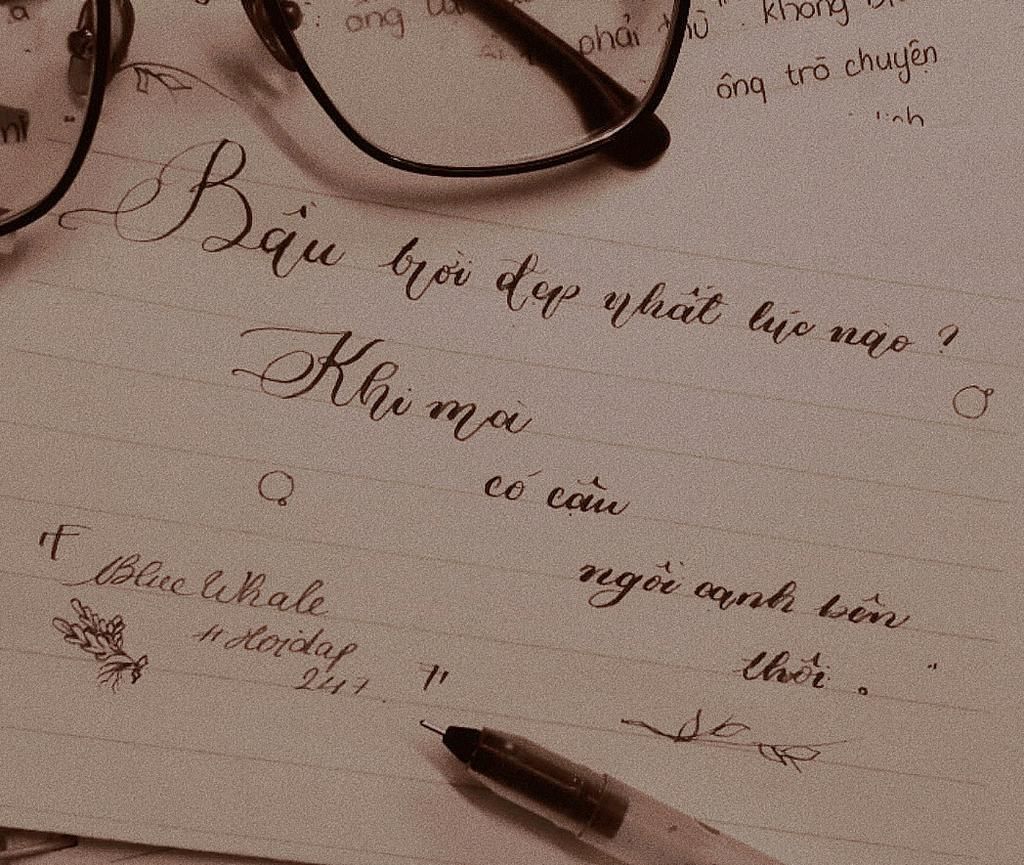 ông
phải
không
ông trò chuyện
Bầu trời đẹp nhất lúc nào?
Khi mà
có cậu
ngồi cạnh bên
thôi.
Blue Whale
Hoidap
247